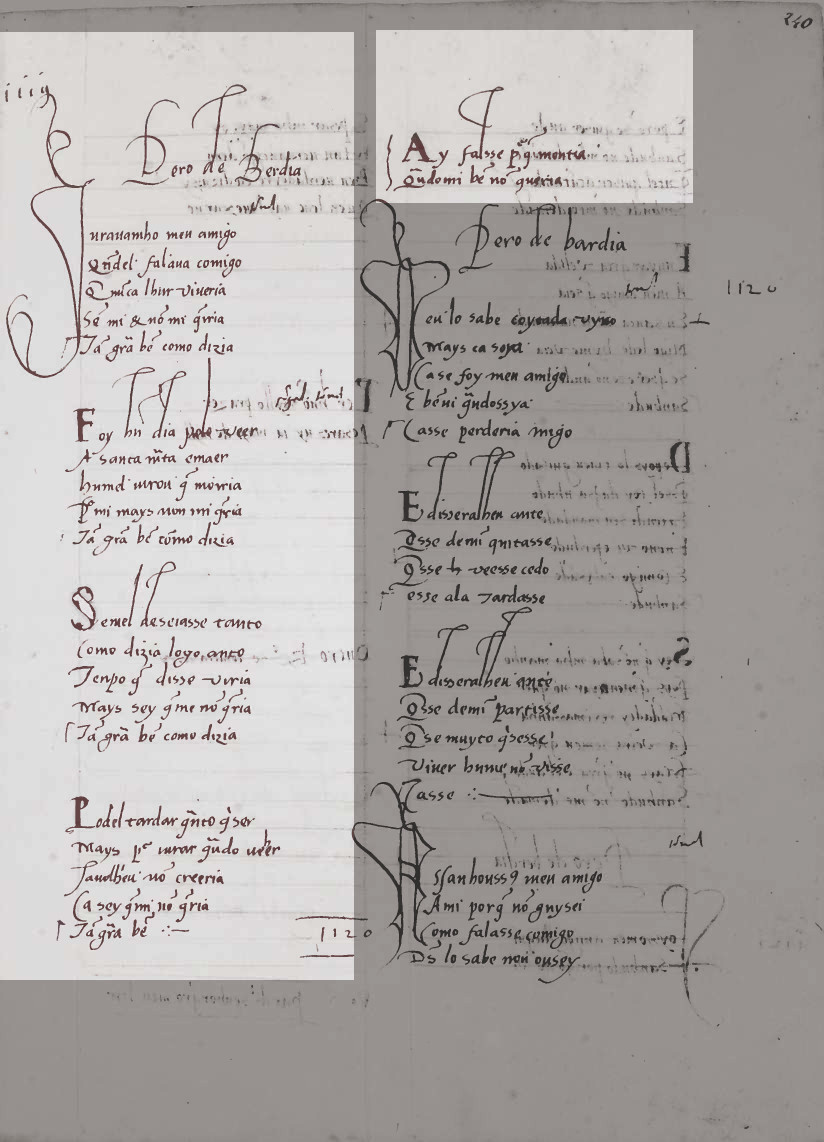 240
iiij
Pero de Berdia
Iurauamho meu amigo
Qn̄del falaua comigo
Q nūca lhur viueria
Sē mi & nō mi q̄ria
Tā grā bē como dizia
Foy hū dia polo veer
A santa mͬta emaer
hu mel iurou q̄ morria
Pͬ mi mays non mi q̄ria
Tā grā bē como dizia
Semel deseiasse tanto
Como dizia logo ante
Tenpo q̄ disse viria
Mays sey q̄ me nō q̄ria
Tā grā bē como dizia
Podel tardar q̄nto q̇ser
Mays pͬ iurar q̄ndo veer
Iaudlheu nō creeria
Ca sey q̄ mi nō q̄ria
Tā grā bē
1120
Ay falsse pͬq̄ mentia
Qn̄domi bē nō queria
Pero de bardia
1120
eu lo sabe coyoada vyuo
Mays ca soya
Ca se foy meu amigo
E bē ui q̄ndossya
Casse perderia migo
E disseralheu ante
Qsse demī quitasse
Qsse lh veesse cedo
esse ala tardasse
E disseralheu ante
Qsse demī partisse
Qse muyto q̇sesse
Viuer hume nō visse
Casse
Assanhouss9 meu amigo
A mi porq̄ nō guysei
Como falasse comigo
Ds̄ lo sabe non ousey